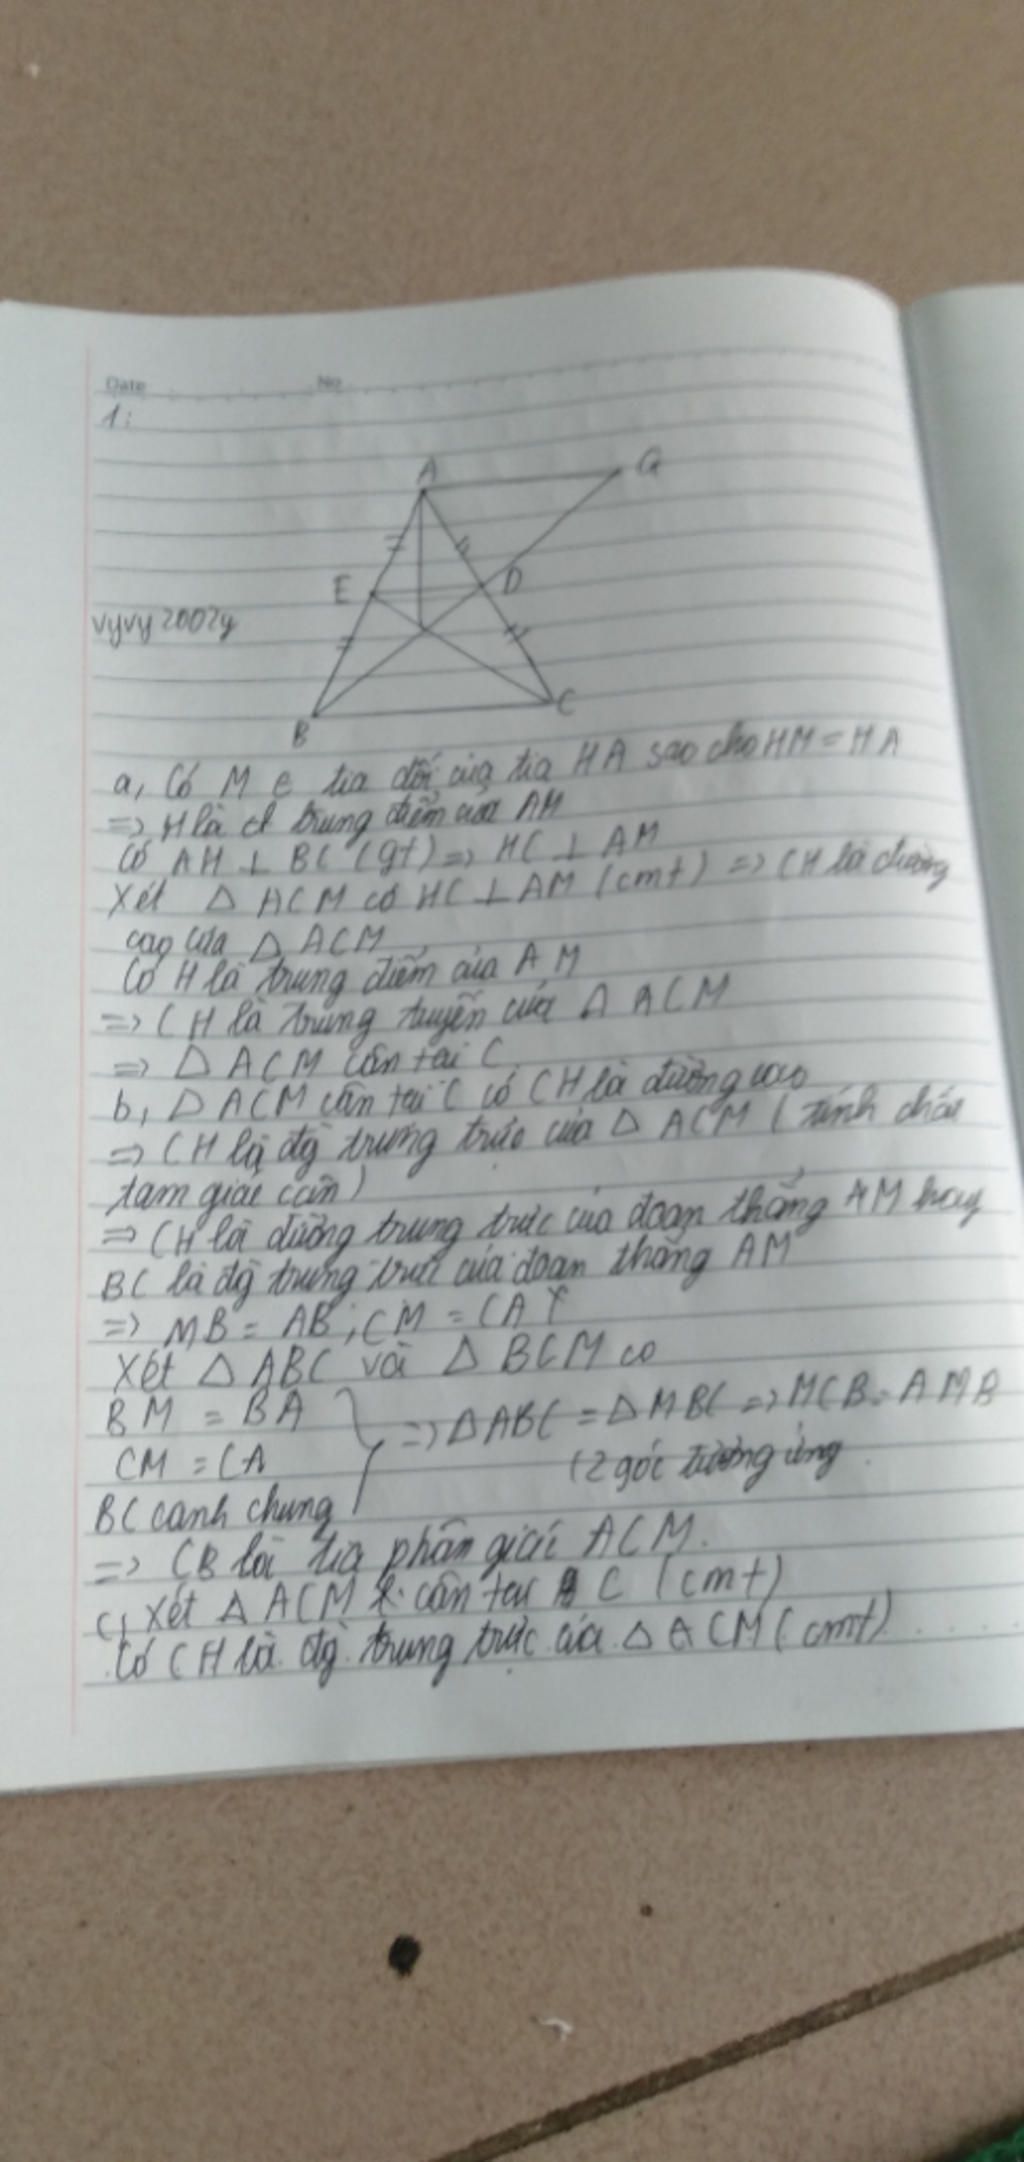 Date No
1:
A G
E D
vyvy2002g
B C
a, Có M e tia đối của tia HA sao cho HM = HA
=> H là trung điểm của AM
Có AH ⊥ BC (gt) => HC ⊥ AM
Xét Δ ACM có HC ⊥ AM (cmt) => CH là đường
cao của Δ ACM
Có H là trung điểm của AM
=> CH là trung tuyến của Δ ACM
=> Δ ACM cân tại C
b, Δ ACM cân tại C có CH là đường cao
=> CH là đg trung trực của Δ ACM ( tính chất
tam giác cân)
=> CH là đường trung trực của đoạn thẳng AM hay
BC là đg trung trực của đoạn thẳng AM
=> MB = AB ; CM = CA
Xét Δ ABC và Δ BCM co
BM = BA
CM = CA
=> Δ ABC = Δ MBC => MCB = AMB
(2 góc tương ứng
BC canh chung
=> CB là tia phân giác ACM.
c, Xét Δ ACM cân tại C (cmt)
Có CH là đg trung trực của Δ ACM (cmt)